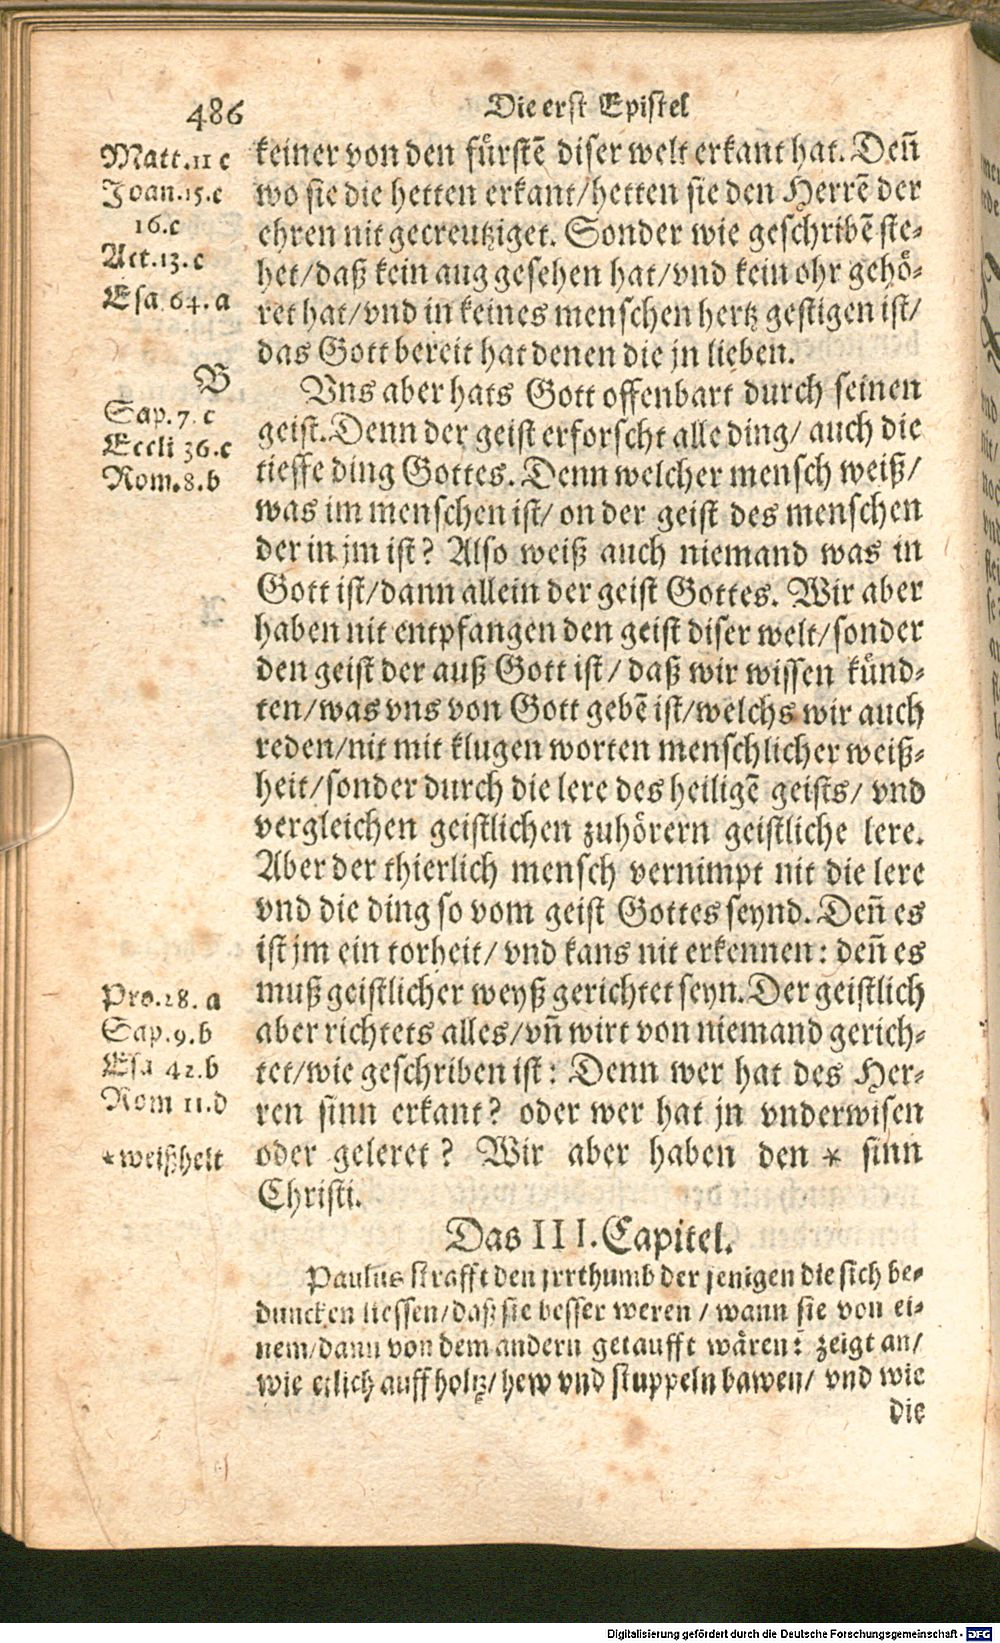 486
Die erst Epistel
Matt.11 c
Joan.15.c
16.c
Act.13.c
Esa 64.a
B
Sap.7.c
Eccli 36.c
Rom.8.b
Pro.28.a
Sap.9.b
Esa 42.b
Rom 11.d
*weißheit
keiner von den fürstē diser welt erkant hat. Deñ
wo sie die hetten erkant/hetten sie den Herrē der
ehren nit gecreutziget. Sonder wie geschribē ste-
het/daß kein aug gesehen hat/vnd kein ohr gehö-
ret hat/vnd in keines menschen hertz gestigen ist/
das Gott bereit hat denen die jn lieben.
Vns aber hats Gott offenbart durch seinen
geist. Denn der geist erforscht alle ding/ auch die
tieffe ding Gottes. Denn welcher mensch weiß/
was im menschen ist/ on der geist des menschen
der in jm ist? Also weiß auch niemand was in
Gott ist/dann allein der geist Gottes. Wir aber
haben nit entpfangen den geist diser welt/sonder
den geist der auß Gott ist/ daß wir wissen künd-
ten/was vns von Gott gebē ist/welchs wir auch
reden/nit mit klugen worten menschlicher weiß-
heit/sonder durch die lere des heiligē geists/ vnd
vergleichen geistlichen zuhörern geistliche lere.
Aber der thierlich mensch vernimpt nit die lere
vnd die ding so vom geist Gottes seynd. Deñ es
ist jm ein torheit/ vnd kans nit erkennen: deñ es
muß geistlicher weyß gerichtet seyn. Der geistlich
aber richtets alles/vñ wirt von niemand gerich-
tet/wie geschriben ist: Denn wer hat des Her-
ren sinn erkant? oder wer hat jn vnderwisen
oder geleret? Wir aber haben den * sinn
Christi.
Das III. Capitel.
Paulus strafft den jrrthumb der jenigen die sich be-
duncken liessen/daß sie besser weren / wann sie von ei-
nem/dann von dem andern getaufft wären: zeigt an/
wie etlich auff holtz/ hew vnd stuppeln bawen/ vnd wie
die
Digitalisierung gefördert durch die Deutsche Forschungsgemeinschaft - DFG